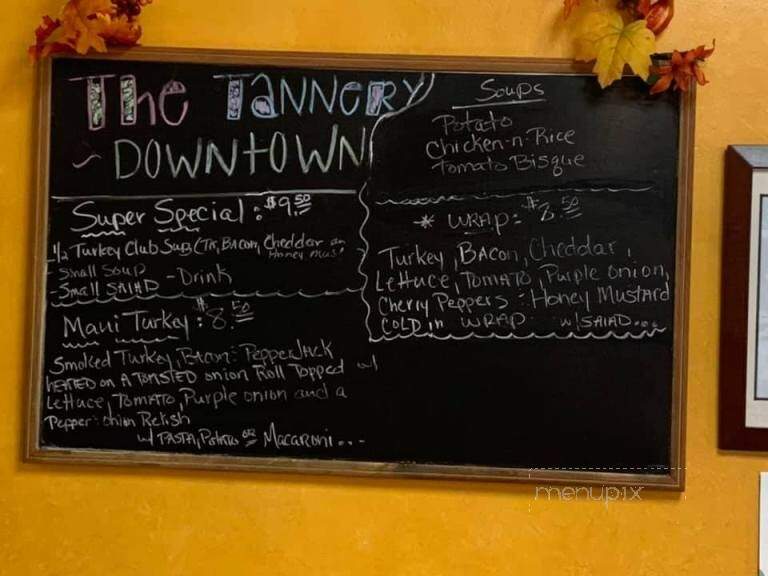 The Tannery
~ Downtown
Super Special: $9.50
1/2 Turkey Club Sub (TK, Bacon, Cheddar
Honey Mus.
- Small Soup
- Small Salad - Drink
Maui Turkey: $8.50
Smoked Turkey, Bacon: PepperJack
HEATED on A TOASTED onion Roll Topped w/
Lettuce, Tomato, Purple onion and a
Pepper: onion Relish
w/ PASTA, Potato or Macaroni...
Soups
Potato
Chicken-n-Rice
Tomato Bisque
* WRAP: $8.50
Turkey, BACON, Cheddar,
Lettuce, TOMATO, Purple onion,
Cherry Peppers: Honey Mustard
COLD in WRAP w/ SALAD...
menupix